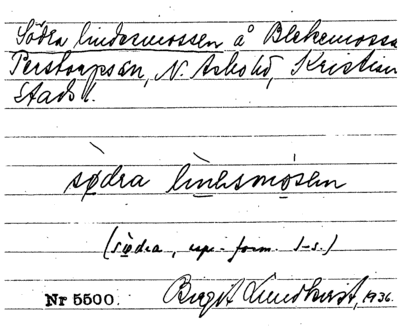 Södra lindermossen å Blekemossa
Perstorpsån, N. Åsbo hd, Kristian
stads l.
södra
(södra, upp- form. s-s.)
Nr 5500. Birgit Lundkvist, 1936.